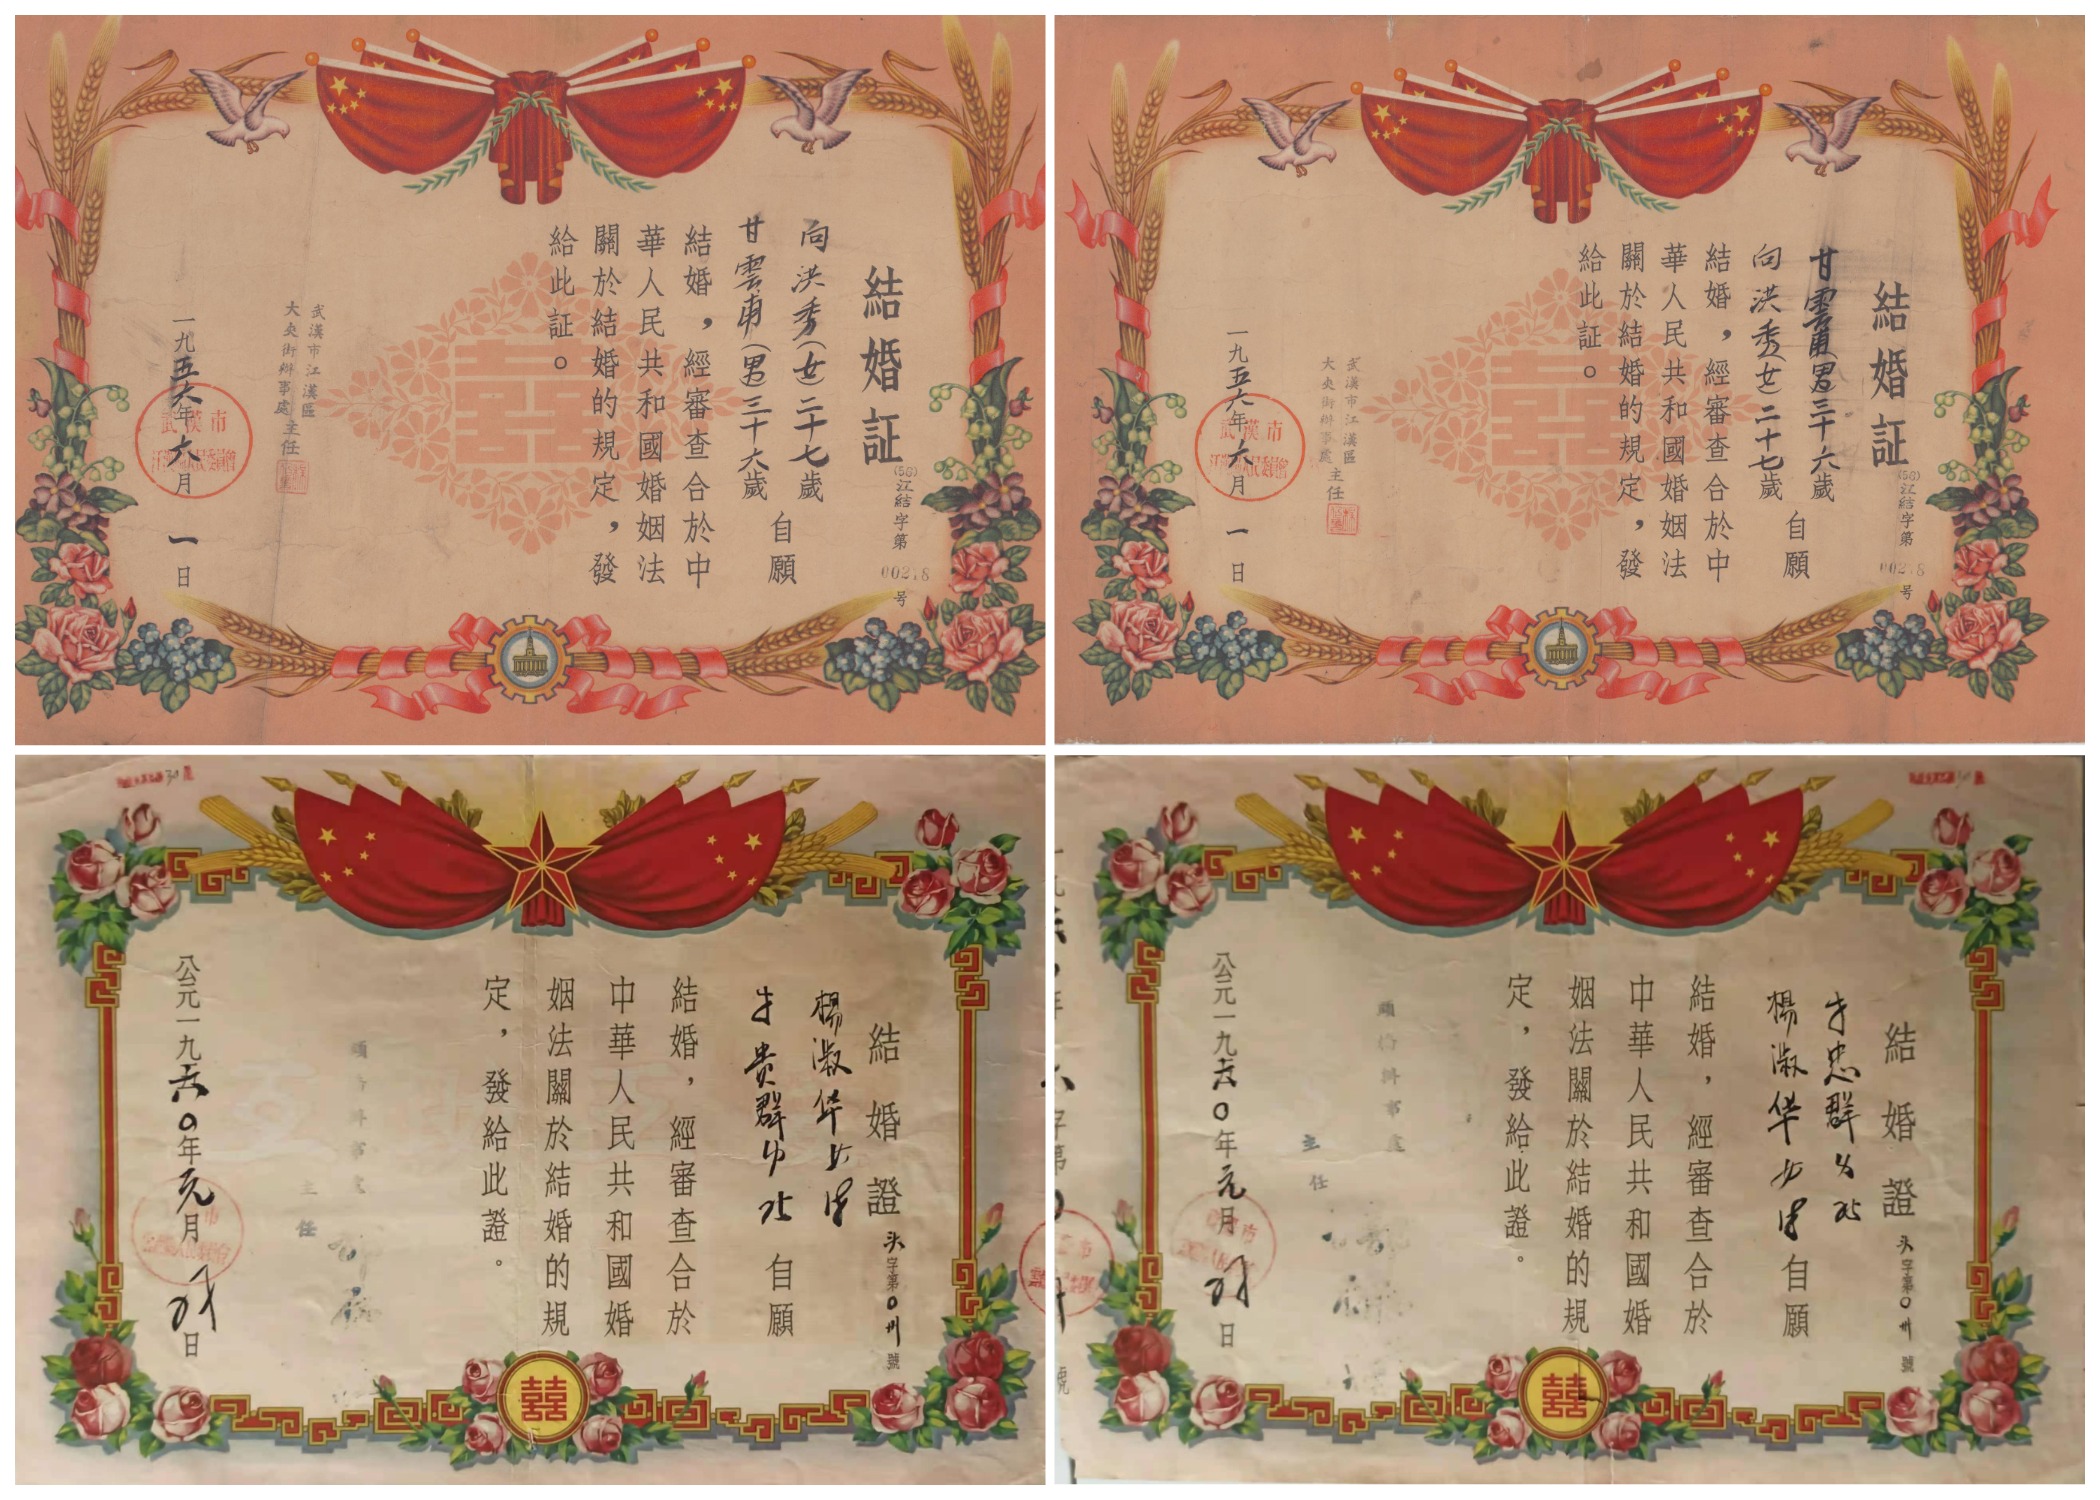 結婚証
(56)江結字第00278号
向洪秀(女)二十七歲
甘雲甫(男)三十六歲
自願
結婚,經審查合於中
華人民共和國婚姻法
關於結婚的規定,發
給此証。
武漢市江漢區
大夾街辦事處主任
一九五六年六月一日
武漢市
江漢區人民委員會
囍
結婚証
(56)江結字第00278号
甘雲甫(男)三十六歲
向洪秀(女)二十七歲
自願
結婚,經審查合於中
華人民共和國婚姻法
關於結婚的規定,發
給此証。
武漢市江漢區
大夾街辦事處
主任
一九五六年六月一日
武漢市
江漢區人民委員會
囍
結婚證
头字第〇卅號
楊淑华女
牛贵群
自願
結婚,經審查合於
中華人民共和國婚
姻法關於結婚的規
定,發給此證。
辦事處
主任
公元一九六〇年元月日
囍
結婚證
头字第〇卅號
牛忠群
楊淑华女
自願
結婚,經審查合於
中華人民共和國婚
姻法關於結婚的規
定,發給此證。
辦事處
主任
公元一九六〇年元月日
囍